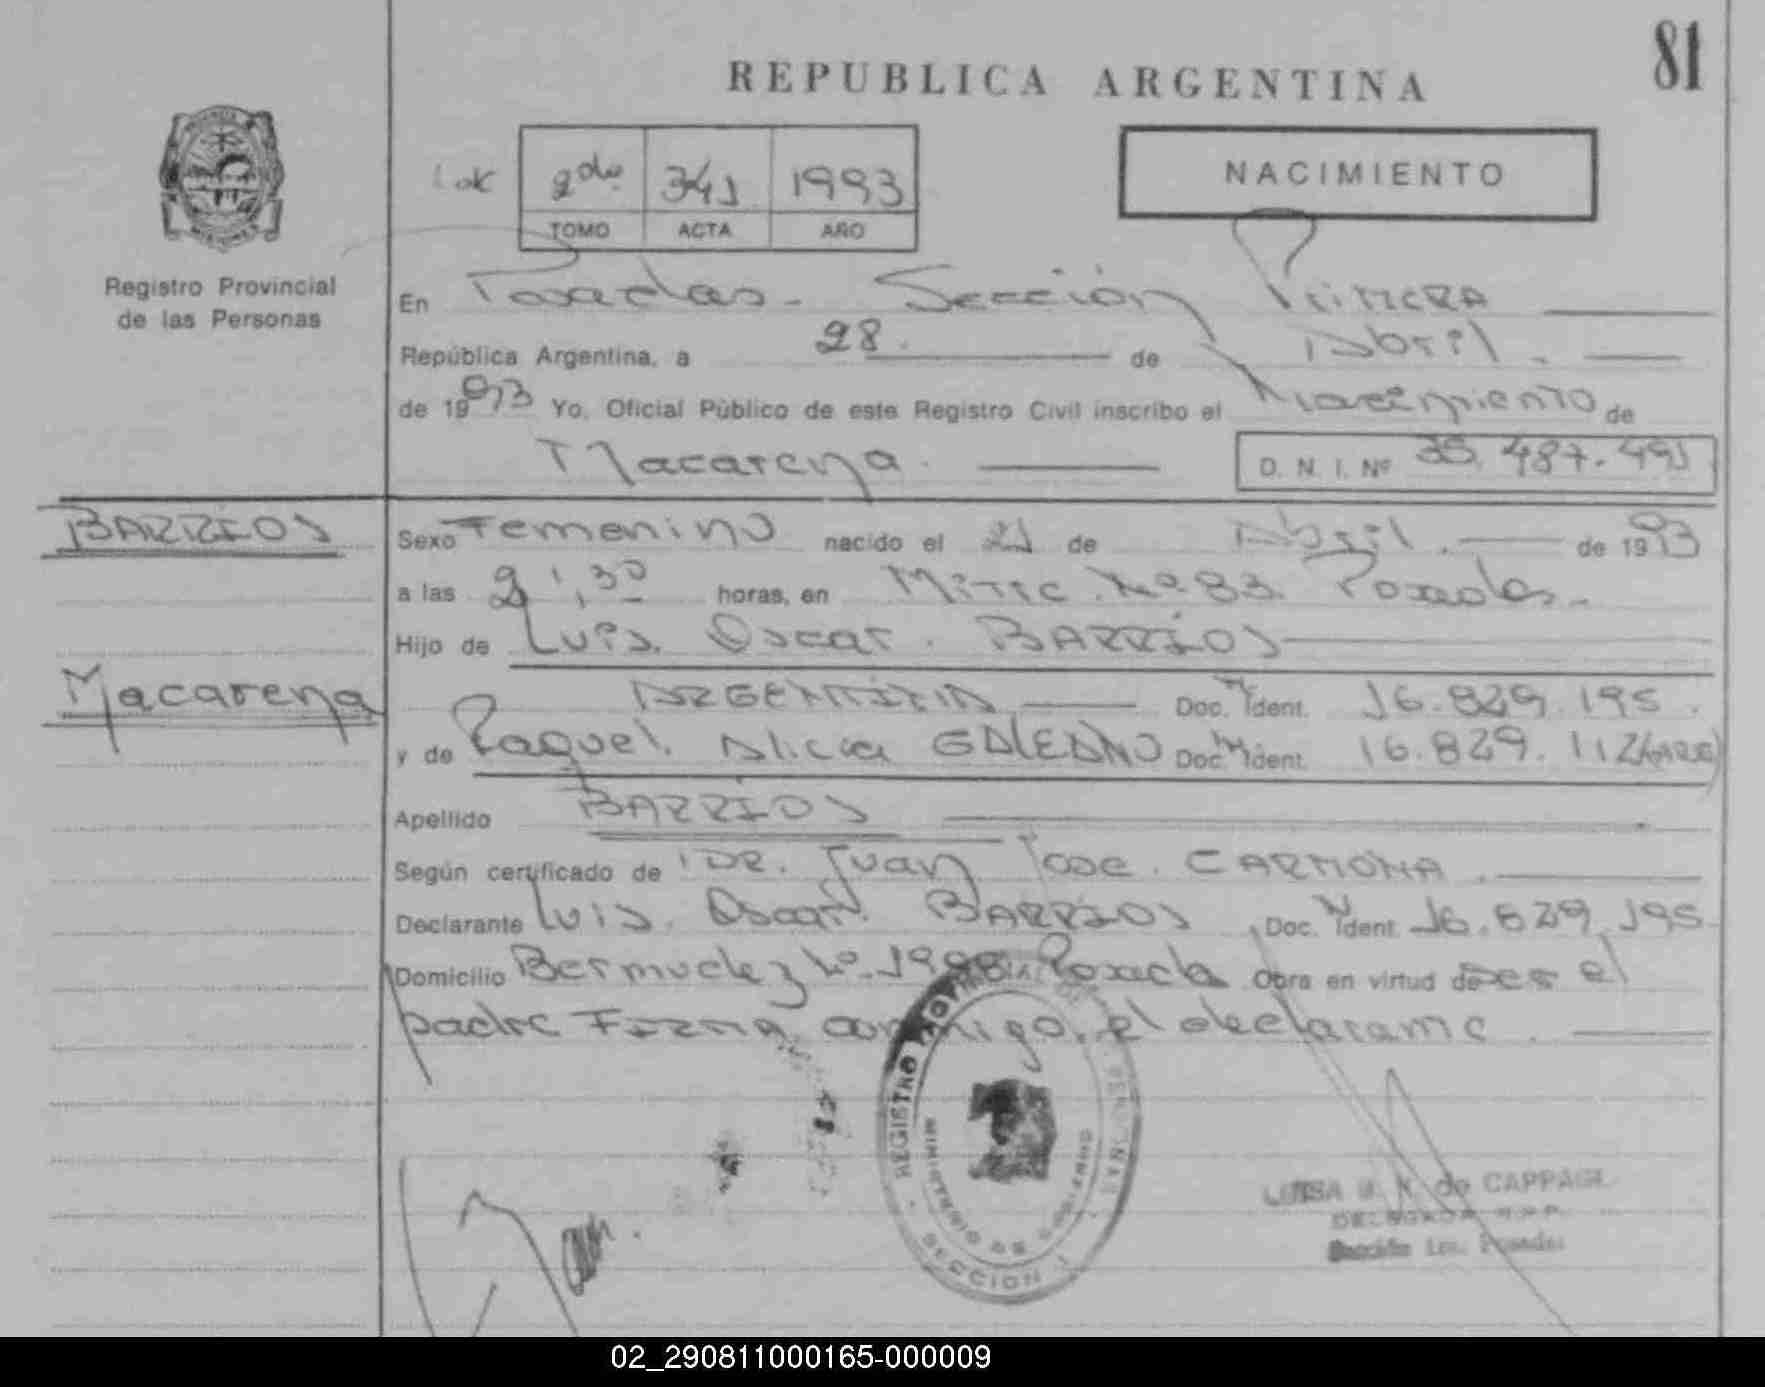 81
REPUBLICA ARGENTINA
NACIMIENTO
2do 341 1993
TOMO ACTA AÑO
Registro Provincial
de las Personas
En Posadas - Sección Primera
República Argentina, a 28 de Abril
de 1993 Yo, Oficial Público de este Registro Civil inscribo el Nacimiento de
Macarena D. N. I. Nº 35.487.491
BARRIOS
Macarena
Sexo Femenino nacido el 21 de Abril de 1993
a las 21,30 horas, en Mitre Nº 83 Posadas -
Hijo de Luis Oscar BARRIOS
ARGENTINA Doc. Ident. 16.829.195
y de Raquel Alicia GALEANO Doc. Ident. 16.829.112
Apellido BARRIOS
Según certificado de DR. Juan Jose CARMONA
Declarante Luis Oscar BARRIOS Doc. Ident. 16.829.195
Domicilio Bermudez Nº Posadas Obra en virtud de ser el
padre Firma conmigo el declarante
REGISTRO PROVINCIAL DE LAS PERSONAS
MINISTERIO DE GOBIERNO
SECCION
LUISA de
Sección 1ra. Posadas
02_290811000165-000009